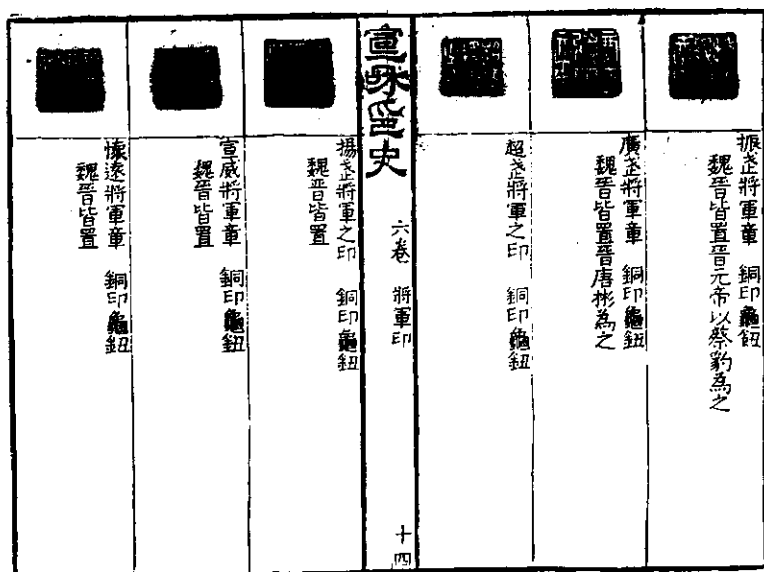 振武將軍章　銅印龜鈕
魏晉皆置晉元帝以蔡豹為之
廣武將軍章　銅印龜鈕
魏晉皆置晉唐彬為之
超武將軍之印　銅印龜鈕
宣和印史　六卷　將軍印　十四
揚武將軍之印　銅印龜鈕
魏晉皆置
宣威將軍章　銅印龜鈕
魏晉皆置
懷遠將軍章　銅印龜鈕
魏晉皆置